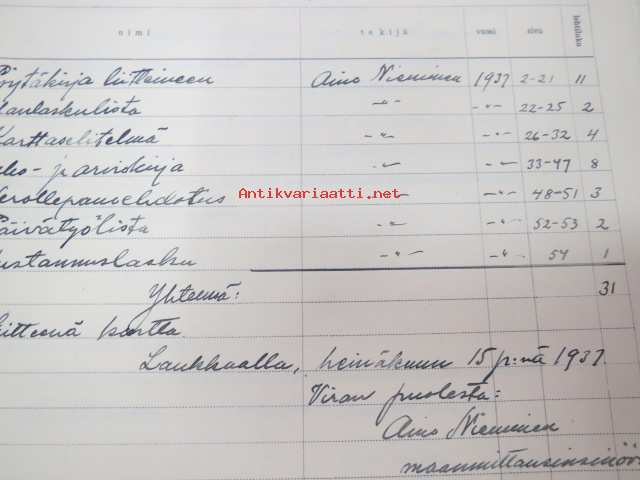 nimi tekijä vuosi sivu lehtiluku
öytäkirja liitteineen Aino Nieminen 1937 2-21 11
laulaskulista -"- -"- 22-25 2
Karttaselitelmä -"- -"- 26-32 4
ko- ja arviokirja -"- -"- 33-47 8
erollepanoehdotus -"- -"- 48-51 3
Päivätyölista -"- -"- 52-53 2
ustannuslasku -"- -"- 54 1
Yhteensä: 31
iitteenä kartta.
Laukkaalla, heinäkuun 15 p:nä 1937.
Viran puolesta:
Aino Nieminen
maanmittausinsinöö
Antikvariaatti.net